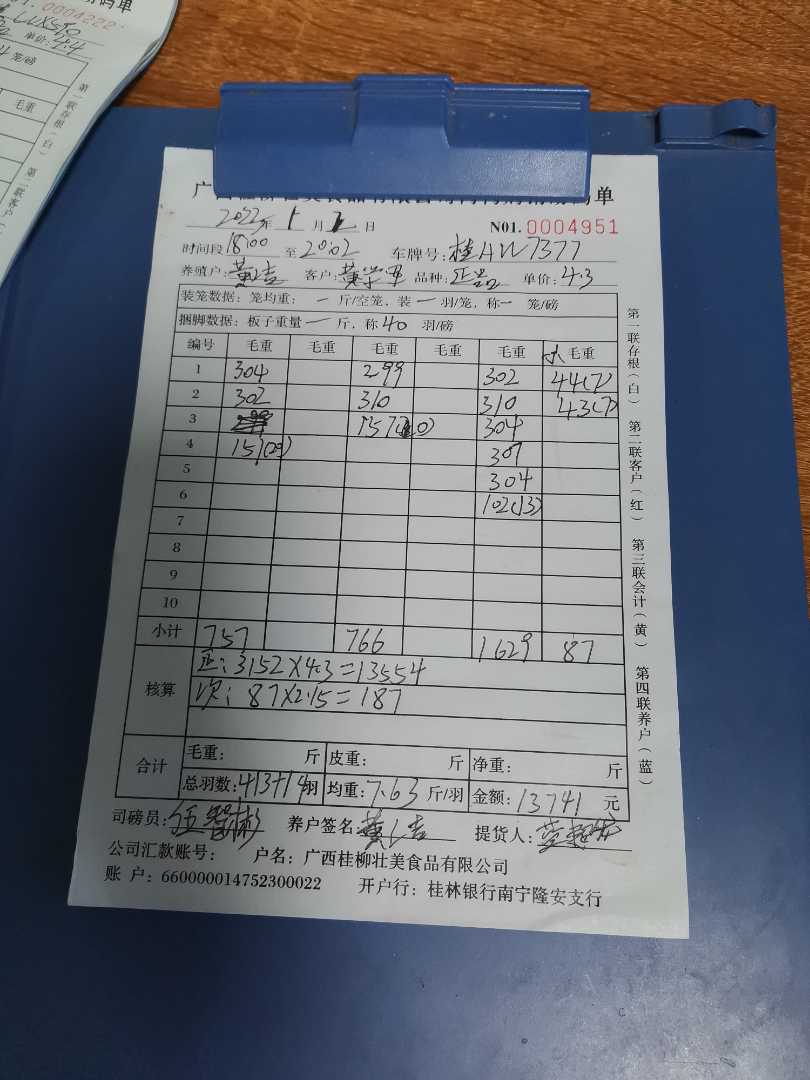 码单
0004222
单价:4.4
笼/磅
毛重
第一联存根(白) 第二联客户
2022年1月2日 N01.0004951
时间段18:00至20:02 车牌号:桂AW7377
养殖户: 客户: 品种:正品 单价:4.3
装笼数据:笼均重:一斤/空笼,装一羽/笼,称一笼/磅
捆脚数据:板子重量一斤,称40羽/磅
编号 毛重 毛重 毛重 毛重 毛重 次毛重
1 304 299 302 44(7)
2 302 310 310 43(7)
3 157(20) 304
4 151(20) 307
5 304
6 102(13)
7
8
9
10
小计 757 766 1629 87
核算 正:3152×4.3=13554
次:87×2.15=187
合计 毛重: 斤 皮重: 斤 净重: 斤
总羽数:413+14羽 均重:7.63斤/羽 金额:13741元
司磅员:伍智彬 养户签名: 提货人:
公司汇款账号: 户名:广西桂柳壮美食品有限公司
账户:660000014752300022 开户行:桂林银行南宁隆安支行
第一联存根(白) 第二联客户(红) 第三联会计(黄) 第四联养户(蓝)